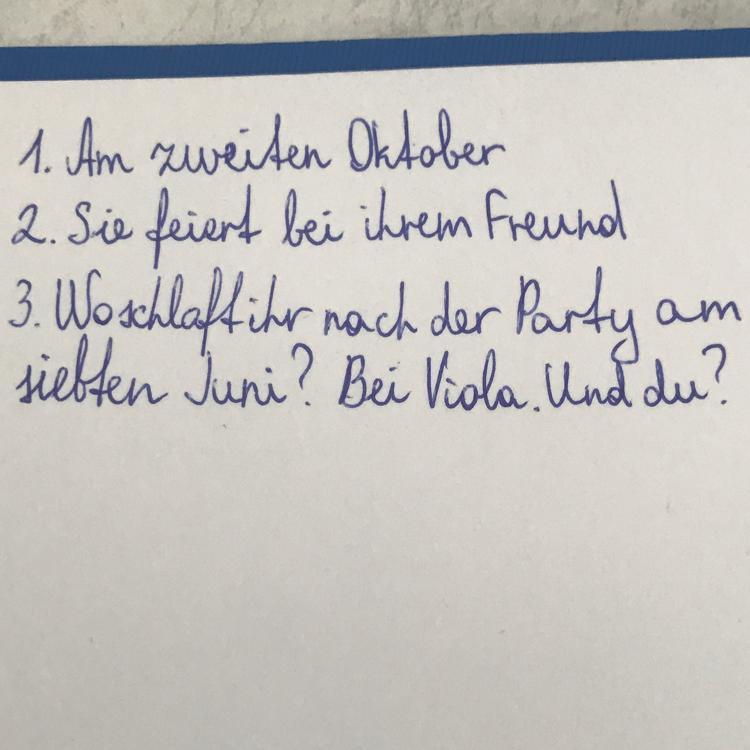 1. Am zweiten Oktober
2. Sie feiert bei ihrem Freund
3. Wo schlaft ihr nach der Party am
siebten Juni? Bei Viola. Und du?